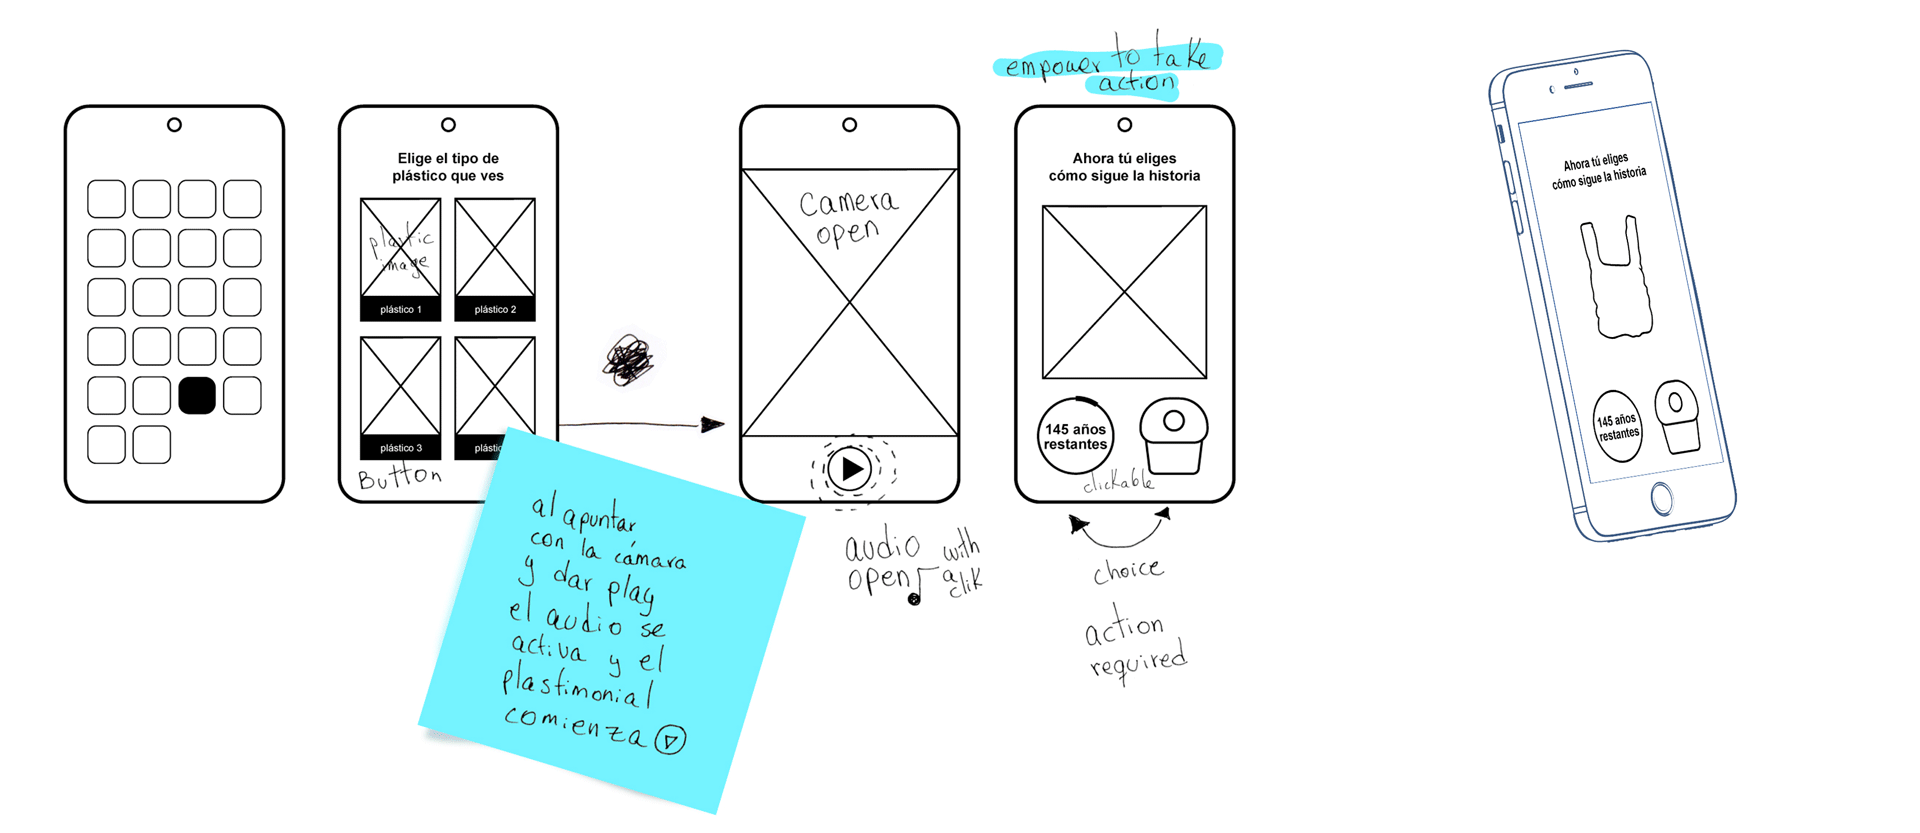 Elige el tipo de
plástico que ves
plastic
image
plástico 1
plástico 2
plástico 3
Button
al apuntar
con la cámara
y dar play
el audio se
activa y el
plastimonial
comienza
Camera
open
audio with
open a
clik
empower to take
action
Ahora tú eliges
cómo sigue la historia
145 años
restantes
clickable
choice
action
required
Ahora tú eliges
cómo sigue la historia
145 años
restantes